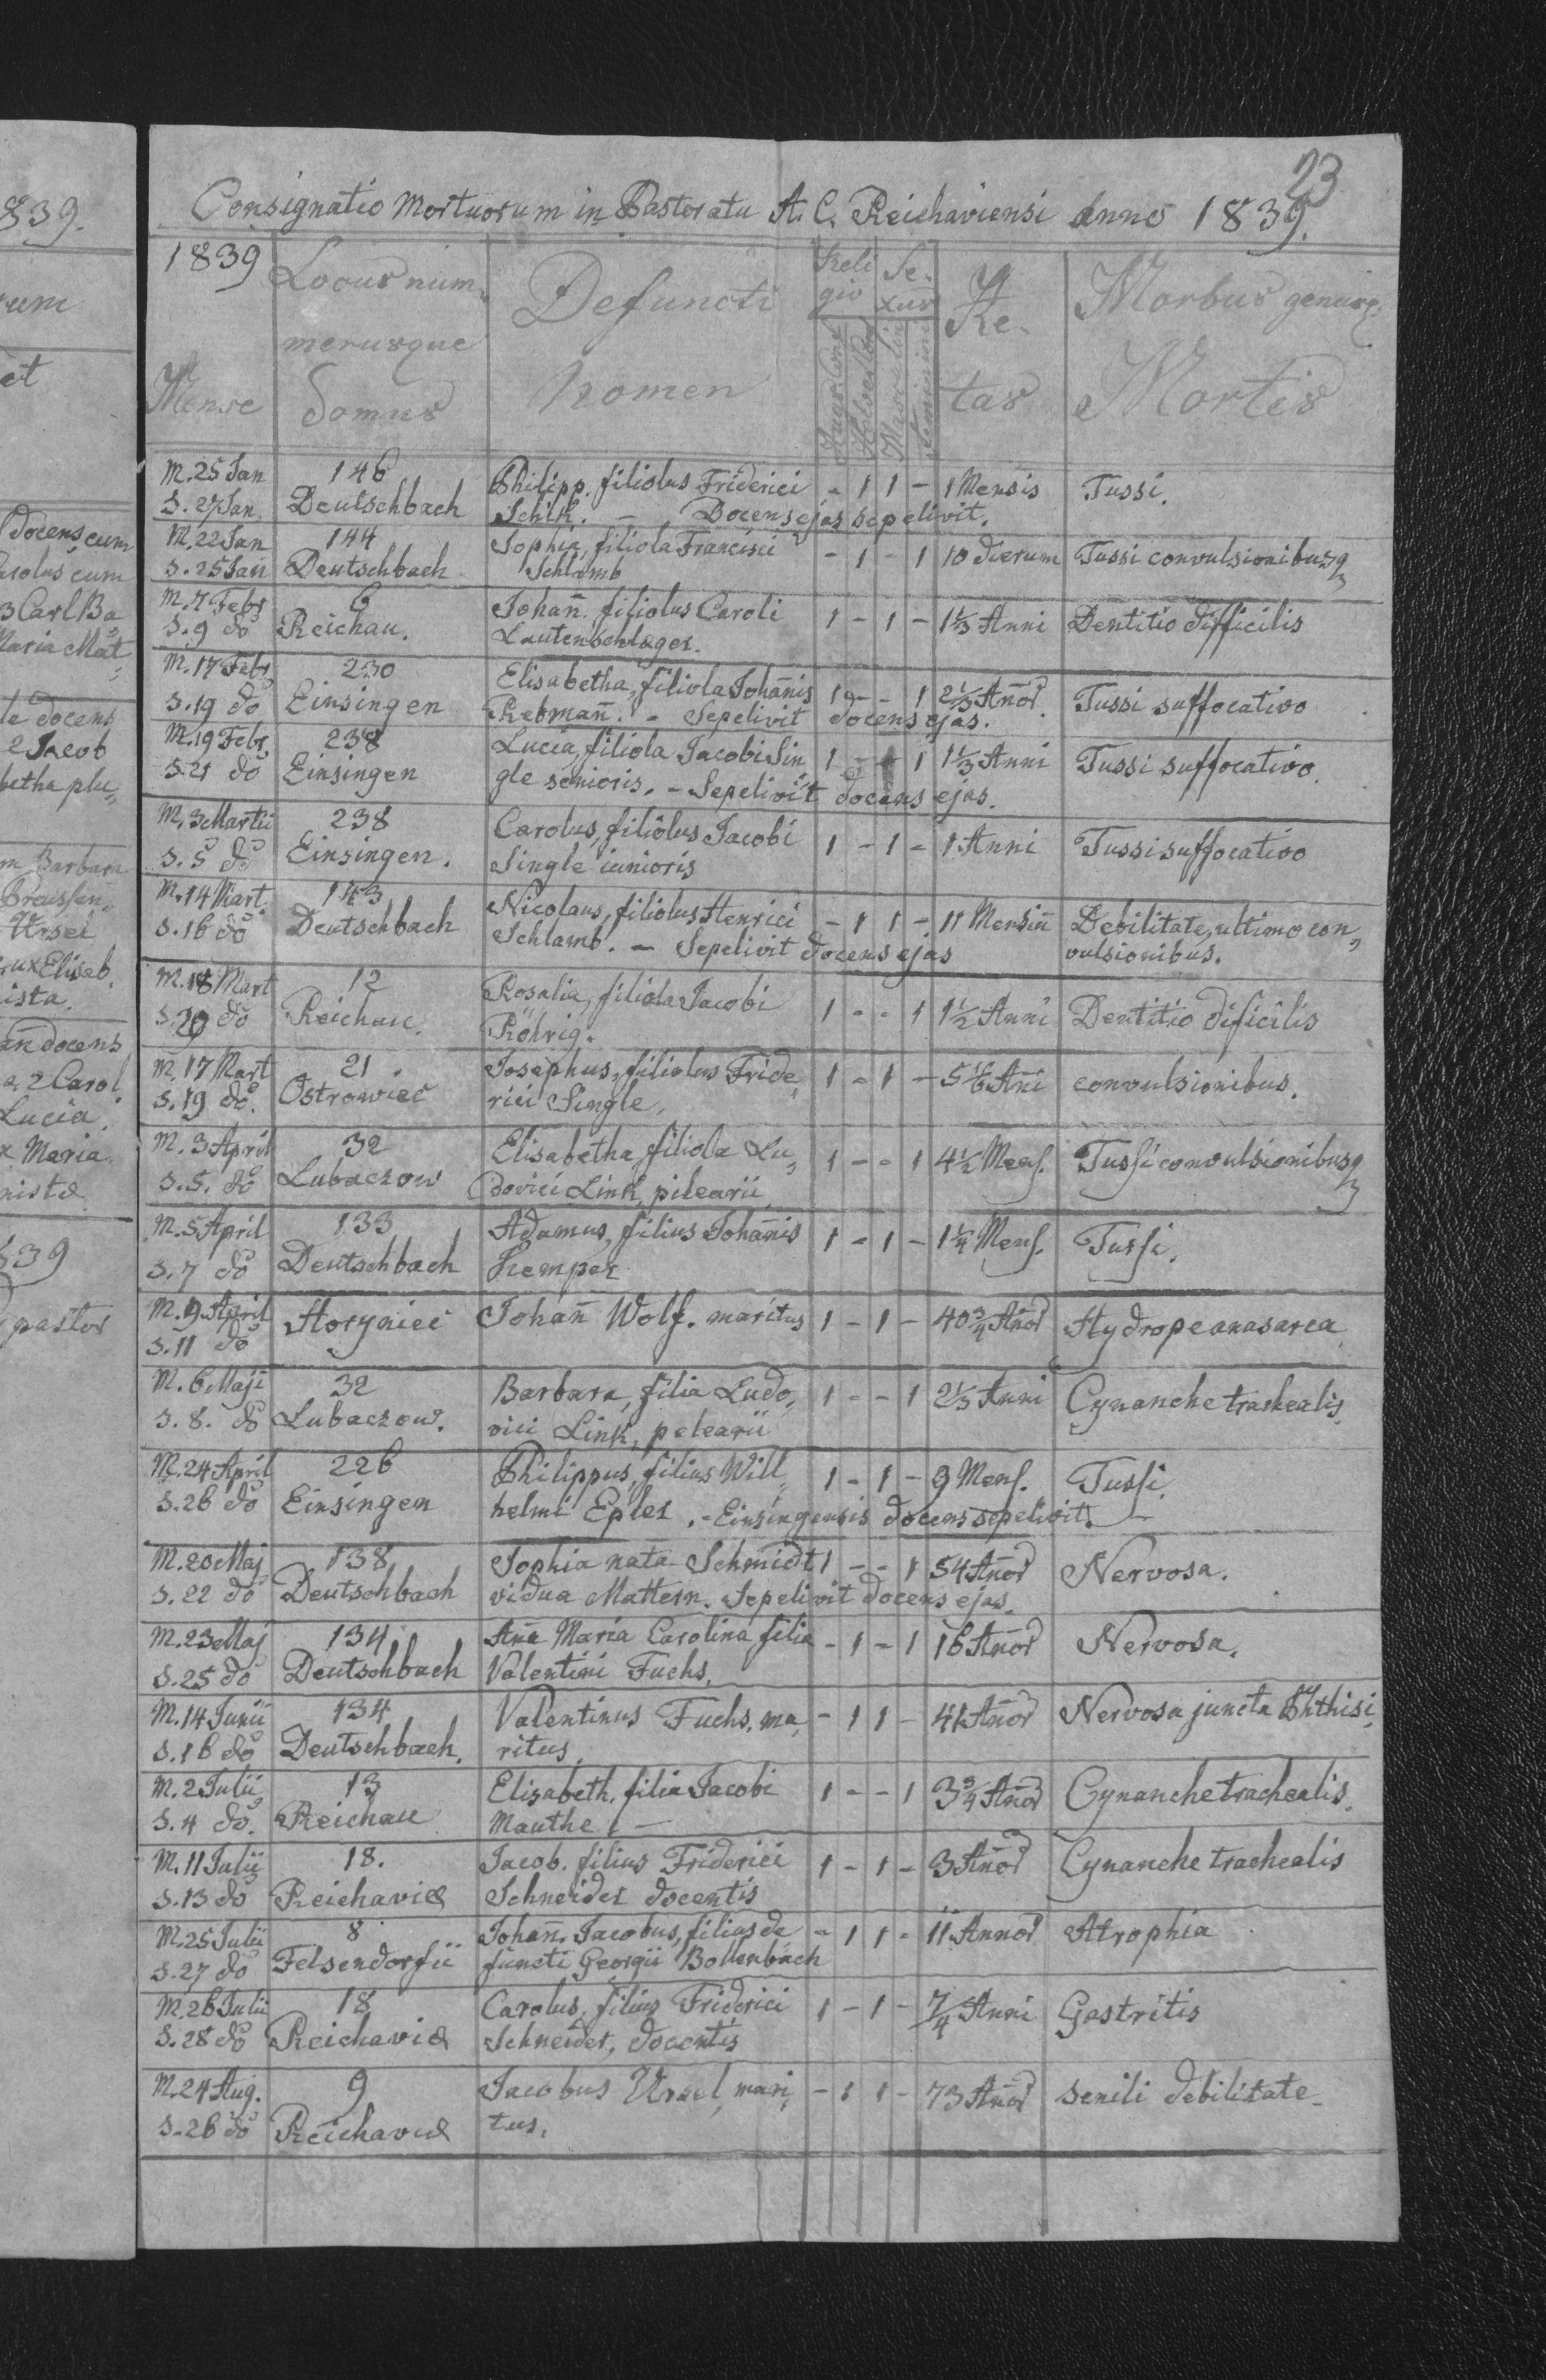 839.
rum
et
docens cum
arolus cum
3 Carl Ba
Maria Mat
le docens
2 Jacob
betha plu
m Barbara
Preussen
Ursel
ux Eliseb.
ista.
docens
2 Carol.
Lucia.
x Maria
nistæ
839
pastor
23
Consignatio Mortuorum in Pastoratu A. C. Reichaviensi Anno 1839.
1839 Locus num Defuncti Reli Se Æ Morbus genusq
gio xus
merusque
Mense Domus nomen Aug. Conf Helvet. Conf Masculin Feminini tas Mortis
M. 25 Jan 146 Philipp. filiolus Friderici - 1 1 - 1 Mensis Tussi.
S. 27 Jan. Deutschbach Schik. - Docens ejas sepelivit.
M. 22 Jan 144 Sophia, filiola Francisci - 1 - 1 10 dierum Tussi convulsionibusq
S. 25 Jan Deutschbach Schlamb
M. 7 Febr 6 Johan̄. filiolus Caroli 1 - 1 - 1⅓ Anni Dentitio difficilis
S. 9 do Reichau. Lautenschlager.
M. 17 Febr 230 Elisabetha, filiola Johan̄is 1 - - 1 2⅓ An̄or Tussi suffocativo
S. 19 do Einsingen Rebman̄. - Sepelivit docens ejas.
M. 19 Febr. 238 Lucia, filiola Jacobi Sin 1 - - 1 1⅓ Anni Tussi suffocativo.
S. 21 do Einsingen gle senioris. - Sepelivit docens ejas.
M. 3 Martii 238 Carolus, filiolus Jacobi 1 - 1 - 1 Anni Tussi suffocativo
S. 5 do Einsingen. Single iunioris
M. 14 Mart. 143 Nicolaus, filiolus Henrici - 1 1 - 11 Mensiū Debilitate, ultimo con
S. 16 do Deutschbach Schlamb. - Sepelivit docens ejas vulsionibus.
M. 18 Mart 12 Rosalia, filiola Jacobi 1 - - 1 1½ Anni Dentitio dificilis
S. 20 do Reichau. Röhrig.
M. 17 Mart 21 Josephus, filiolus Fride 1 - 1 - 5 An̄i convulsionibus.
S. 19 do. Ostrowiec rici Single.
M. 3 April 32 Elisabetha, filiola Lu 1 - - 1 4½ Mens. Tussi convulsionibusq
S. 5. do Lubaczow dovici Link, pilearii
M. 5 April 133 Adamus, filius Johan̄is 1 - 1 - 1¼ Mens. Tussi.
S. 7 do Deutschbach Kemper
M. 9 April Horyniec Johan̄ Wolf. maritus 1 - 1 - 40¾ An̄or Hydrope anasarca
S. 11 do
M. 6 Maji 32 Barbara, filia Ludo 1 - - 1 2⅓ Anni Cynanche trachealis
S. 8. do Lubaczow. vici Link, pelearii
M. 24 April 226 Philippus, filius Will 1 - 1 - 9 Mens. Tussi.
S. 26 do Einsingen helmi Epler. - Einsingensis docens sepelivit.
M. 20 Maj 138 Sophia nata Schmidt 1 - - 1 54 An̄or Nervosa.
S. 22 do Deutschbach vidua Mattern. Sepelivit docens ejas.
M. 23 Maj 134 An̄a Maria Carolina filia - 1 - 1 16 An̄or Nervosa.
S. 25 do Deutschbach Valentini Fuchs.
M. 14 Junii 134 Valentinus Fuchs. ma - 1 1 - 41 An̄or Nervosa juncta Phthisi
S. 16 do Deutschbach. ritus.
M. 2 Julii 13 Elisabeth. filia Jacobi 1 - - 1 3¾ An̄or Cynanche trachealis
S. 4 do. Reichau Mauthe. -
M. 11 Julii 18. Jacob. filius Friderici 1 - 1 - 3 An̄or Cynanche trachealis
S. 13 do Reichaviæ Schneider docentis
M. 25 Julii 8 Johan̄. Jacobus, filius de - 1 1 - 11 Annor Atrophia
S. 27 do Felsendorfii functi Georgii Bollenbach
M. 26 Julii 18 Carolus, filius Friderici 1 - 1 - 7/4 Anni Gastritis
S. 28 do Reichaviæ Schneider, docentis
M. 24 Aug. 9 Jacobus Ursel, mari - 1 1 - 73 An̄or senili debilitate
S. 26 do Reichaviæ tus.